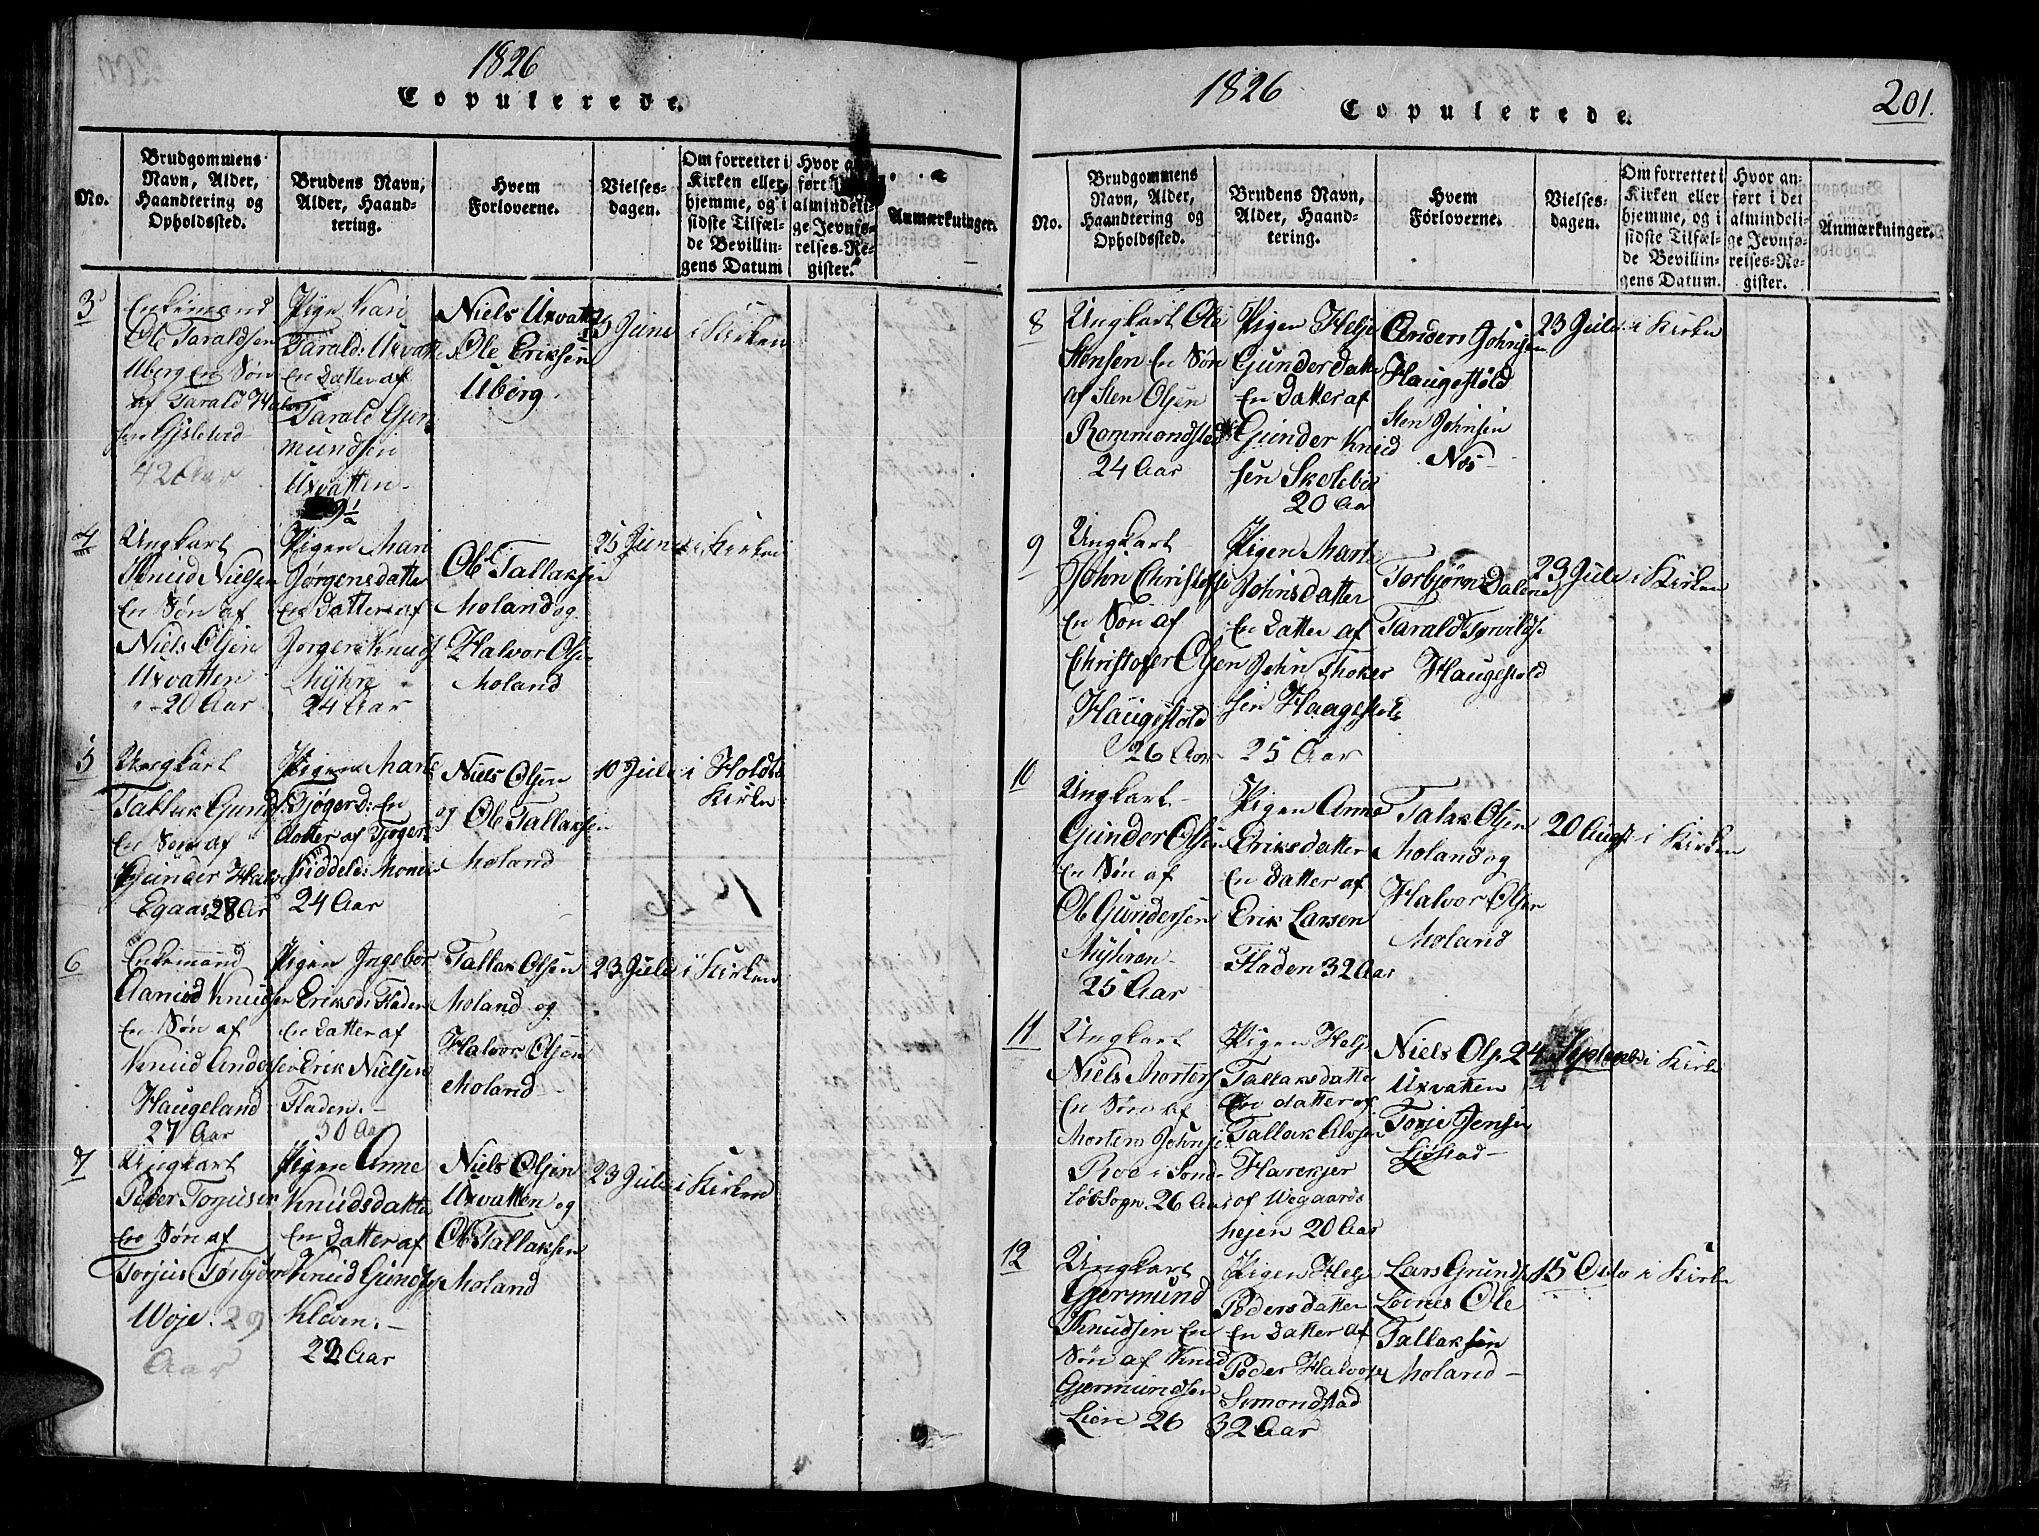 1826
Copulerede.
No.
Brudgommens Navn, Alder, Haandtering og Opholdssted.
Brudens Navn, Alder, Haandtering.
Hvem Forloverne.
Vielsesdagen.
Om forrettet i Kirken eller hjemme, og i sidste Tilfælde Bevillingens Datum
Hvor an ført almindelige Jevnførelses-Register.
Anmærkninger.
3
Enkemand
Ole Taraldsen
Uberg En Søn
af Tarald Halvor
sen
42 Aar
Pige Kari
Tarald: Uxvatte
En Datter af
Tarald Gjer
mundsen
Uxvatten
Niels Uxvatte
Ole Eriksen
Uberg
Juni
i Kirken
4
Ungkart
Knud Nielsen
En Søn af
Niels Olsen
Uxvatten
20 Aar
Pigen Mari
Jørgensdatte
En Datter af
Jørgen Knuds
Myhre
24 Aar
Ole Tallaksen
Moland og
Halvor Olsen
Moland
25 Juni
i Kirken
5
Ungkart
Tallak Gunds
En Søn af
Gunder Halvors
Egaas 28 Aar
Pigen Marte
En
datter af
24 Aar
Niels Olsen
og Ole Tallaksen
Moland
10 Juli
i Holdts
Kirke
6
Enkemand
Aanud Knudsen
En Søn af
Knud Anders
Haugeland
27 Aar
Pigen Ingebor
Eriksd: Fladen
En Datter af
Erik Nielsen
Fladen.
30 Aar
Tallak Olsen
Moland og
Halvor Olsen
Moland
23 Juli
i Kirken
7
Ungkart
Peder Torjusen
En Søn af
Torjus Torbjørn
Woje. 29
Aar
Pigen Anne
Knudsdatte
En Datter af
Knud Gunds
Kleven.
22 Aar
Niels Olsen
Uxvatten og
Ole Tallaksen
Moland
23 Juli
i Kirken
1826
Copulerede.
201.
No.
Brudgommens Navn, Alder, Haandtering og Opholdssted.
Brudens Navn, Alder, Haandtering.
Hvem Forloverne.
Vielsesdagen.
Om forrettet i Kirken eller hjemme, og i sidste Tilfælde Bevillingens Datum.
Hvor anført i det almindelige Jevnførelses-Register.
Anmærkninger.
8
Ungkart Ole
Stensen En Søn
af Sten Olsen
Rommondstad
24 Aar
Pigen Helje
Gunderdatte
En Datter af
Gunder Knud
sen
20 Aar
Anders Johnsen
Haugestøld
Sten Johnsen
Nøs
23 Juli
i Kirken
9
Ungkart
John Christofs
En Søn af
Christofer Olsen
Haugestøld
26 Aar
Pigen Marte
Johnsdatter
En Datter af
John
sen Haugestøl
25 Aar
Torbjørn Dalene
Tarald
Haugestold
23 Juli
i Kirken
10
Ungkart
Gunder Olsen
En Søn af
Ole Gundersen
Myhren
25 Aar
Pigen Anne
Eriksdatter
En Datter af
Erik Larsen
Fladen 32 Aar
Talak Olsen
Moland og
Halvor Olsen
Moland
20 Augst
i Kirken
11
Ungkart
Niels Mortens
En Søn af
Morten Johnsen
Roe i Sønde
løb Sogn 26 Aar
Pigen Helje
Tallaksdatte
En datter af
Tallak Alvsen
af Wegaards
hejen 20 Aar
Niels Ols
Uxvatten
Torje Jensen
24 Septembr
i Kirke
12
Ungkart
Gjermund
Knudsen En
Søn af Knud
Gjermundsen
Lien 26
Pigen Helje
Pedersdatter
En Datter af
Peder Halvors
Simondstad
32 Aar
Lars Grunds
Ole
Tallaksen
Moland
15 Octo
i Kirke